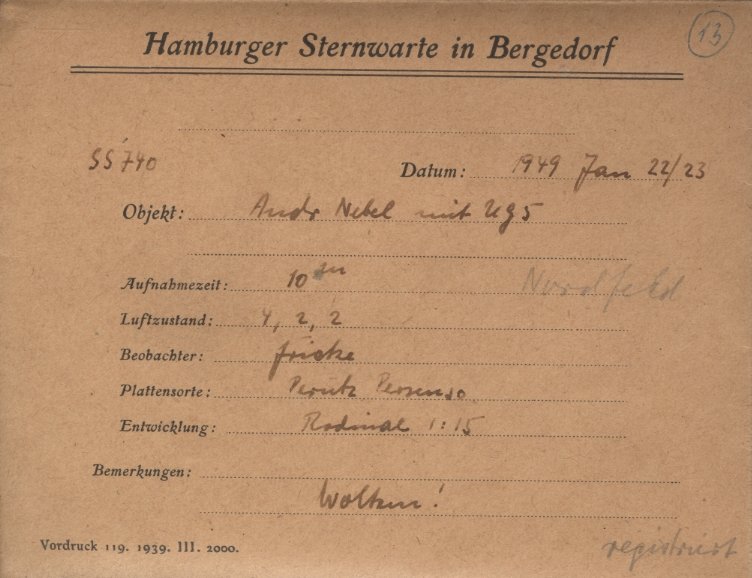 Hamburger Sternwarte in Bergedorf
13
SS 740
Datum: 1949 Jan 22/23
Objekt: Andr Nebel mit UG5
Aufnahmezeit: 10
Nordfeld
Luftzustand: 4, 2, 2
Beobachter: Fricke
Plattensorte: Perutz
Entwicklung: Rodinal 1:15
Bemerkungen:
Wolken!
Vordruck 119. 1939. III. 2000.
registriert